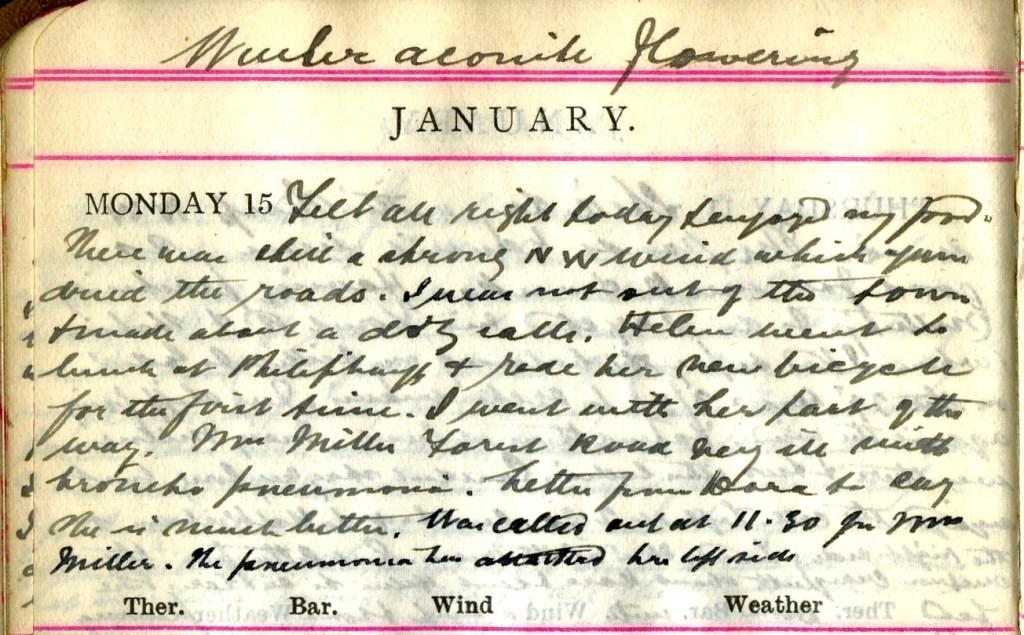 Winter aconite flowering
JANUARY.
MONDAY 15 Felt all right today & enjoyed my food.
There was still a strong NW wind which again
dried the roads. I was not out of the town
& made about a doz calls. Helen went to
lunch at Philiphaugh & rode her new bicycle
for the first time. I went with her part of the
way. Mrs Miller Forest Road very ill with
broncho pneumonia. Letter from Dora to say
she is much better. Was called out at 11.30 for Mrs
Miller. The pneumonia has attacked her left side
Ther. Bar. Wind Weather